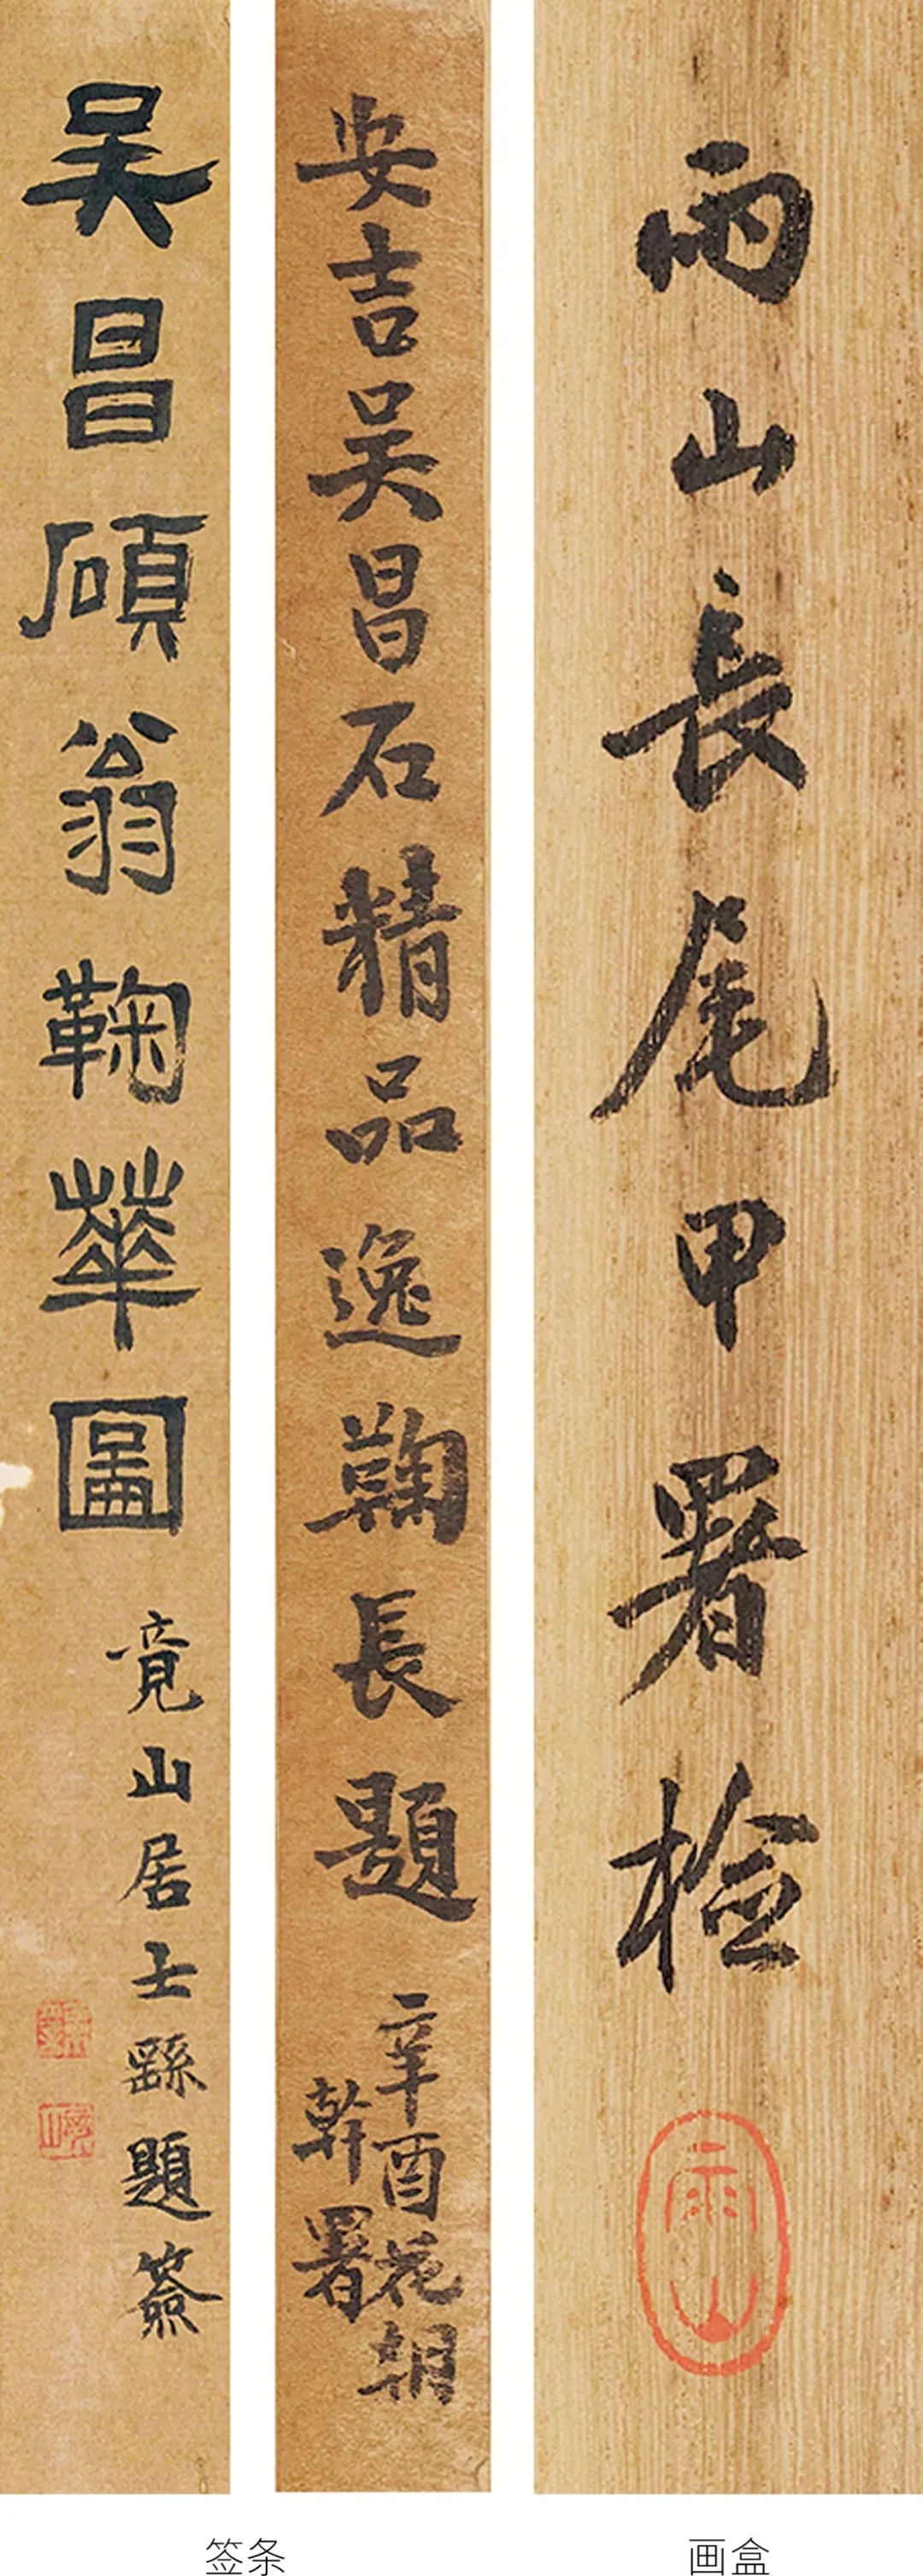 吳昌碩翁鞠華圖
竟山居士繇題簽
安吉吳昌石精品逸鞠長題
辛酉花朝
幹署
雨山長尾甲署檢
雨山
签条
画盒